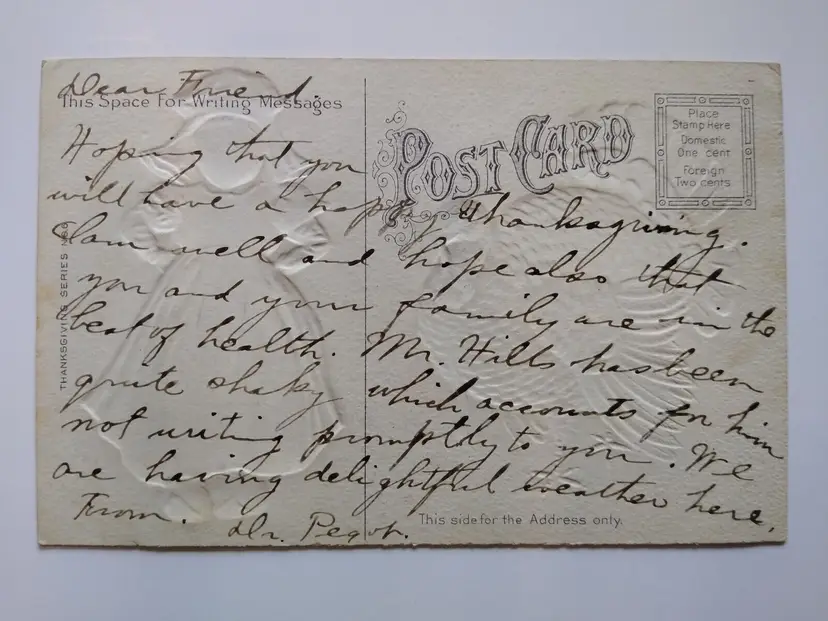 Dear Friend.
This Space For Writing Messages
Hoping that you
will have a happy Thanksgiving.
I am well and hope also that
you and your family are in the
best of health. Mr. Hills has been
quite shaky which accounts for him
not writing promptly to you. We
are having delightful weather here.
From.
Dr.
POST CARD
Place
Stamp Here
Domestic
One cent
Foreign
Two cents
THANKSGIVING SERIES No.
This side for the Address only.